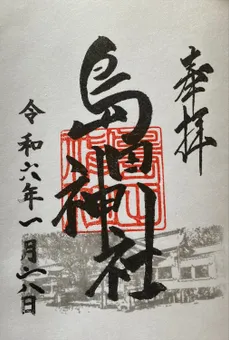 奉拝
島田神社
令和六年一月六日